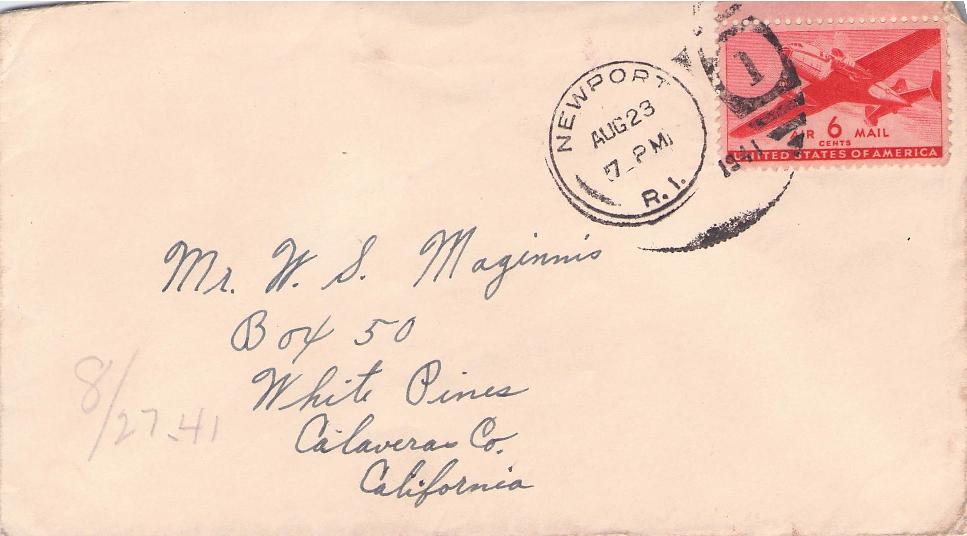 NEWPORT
AUG 23
7_PM
R.I.
1
1941
AIR 6 MAIL
CENTS
UNITED STATES OF AMERICA
Mr. W. S. Maginnis
Box 50
White Pines
Calaveras Co.
California
8/27-41